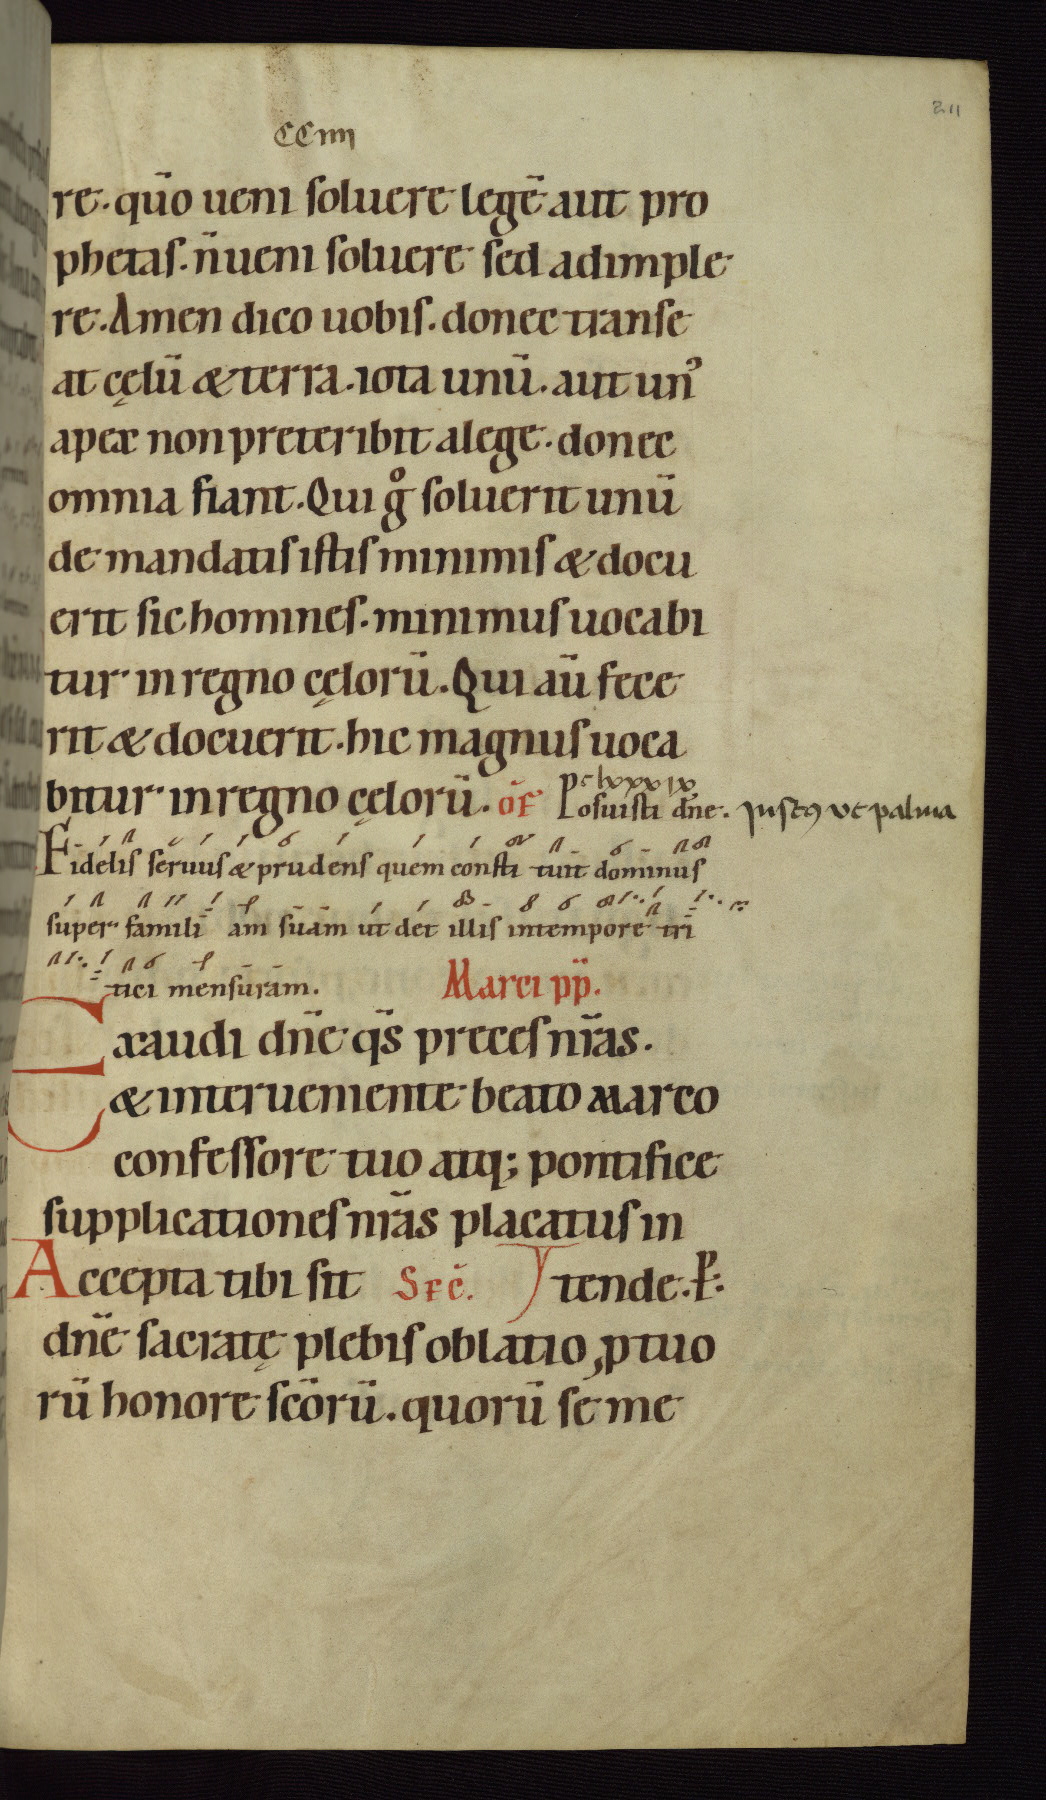 211
CCIIII
re. qm̄o ueni soluere legē aut pro
phetas. n̄ ueni soluere sed adimple
re. Amen dico uobis. donec transe
at cęlū & terra. iota unū. aut un᾽
apex non preteribit a lege. donec
omnia fiant. Qui gͦ soluerit unū
de mandatis istis minimis & docu
erit sic homines. minimus uocabi
tur in regno cęlorū. Qui aū fece
rit & docuerit. hic magnus uoca
lxxxix
bitur in regno cęlorū. of̄ Posuisti dn̄e. Iustꝯ vt palma
Fidelis seruus & prudens quem consti tuit dominus
super famili am suam ut det illis in tempore tri
tici mensuram. Marci pp̄.
Exaudi dn̄e qs̄ preces nr̄as.
& interueniente beato Marco
confessore tuo atq; pontifice
supplicationes nr̄as placatus in
Accepta tibi sit Scē. tende. P̄.
dn̄e sacratę plebis oblatio, p tuo
rū honore scōrū. quorū se me